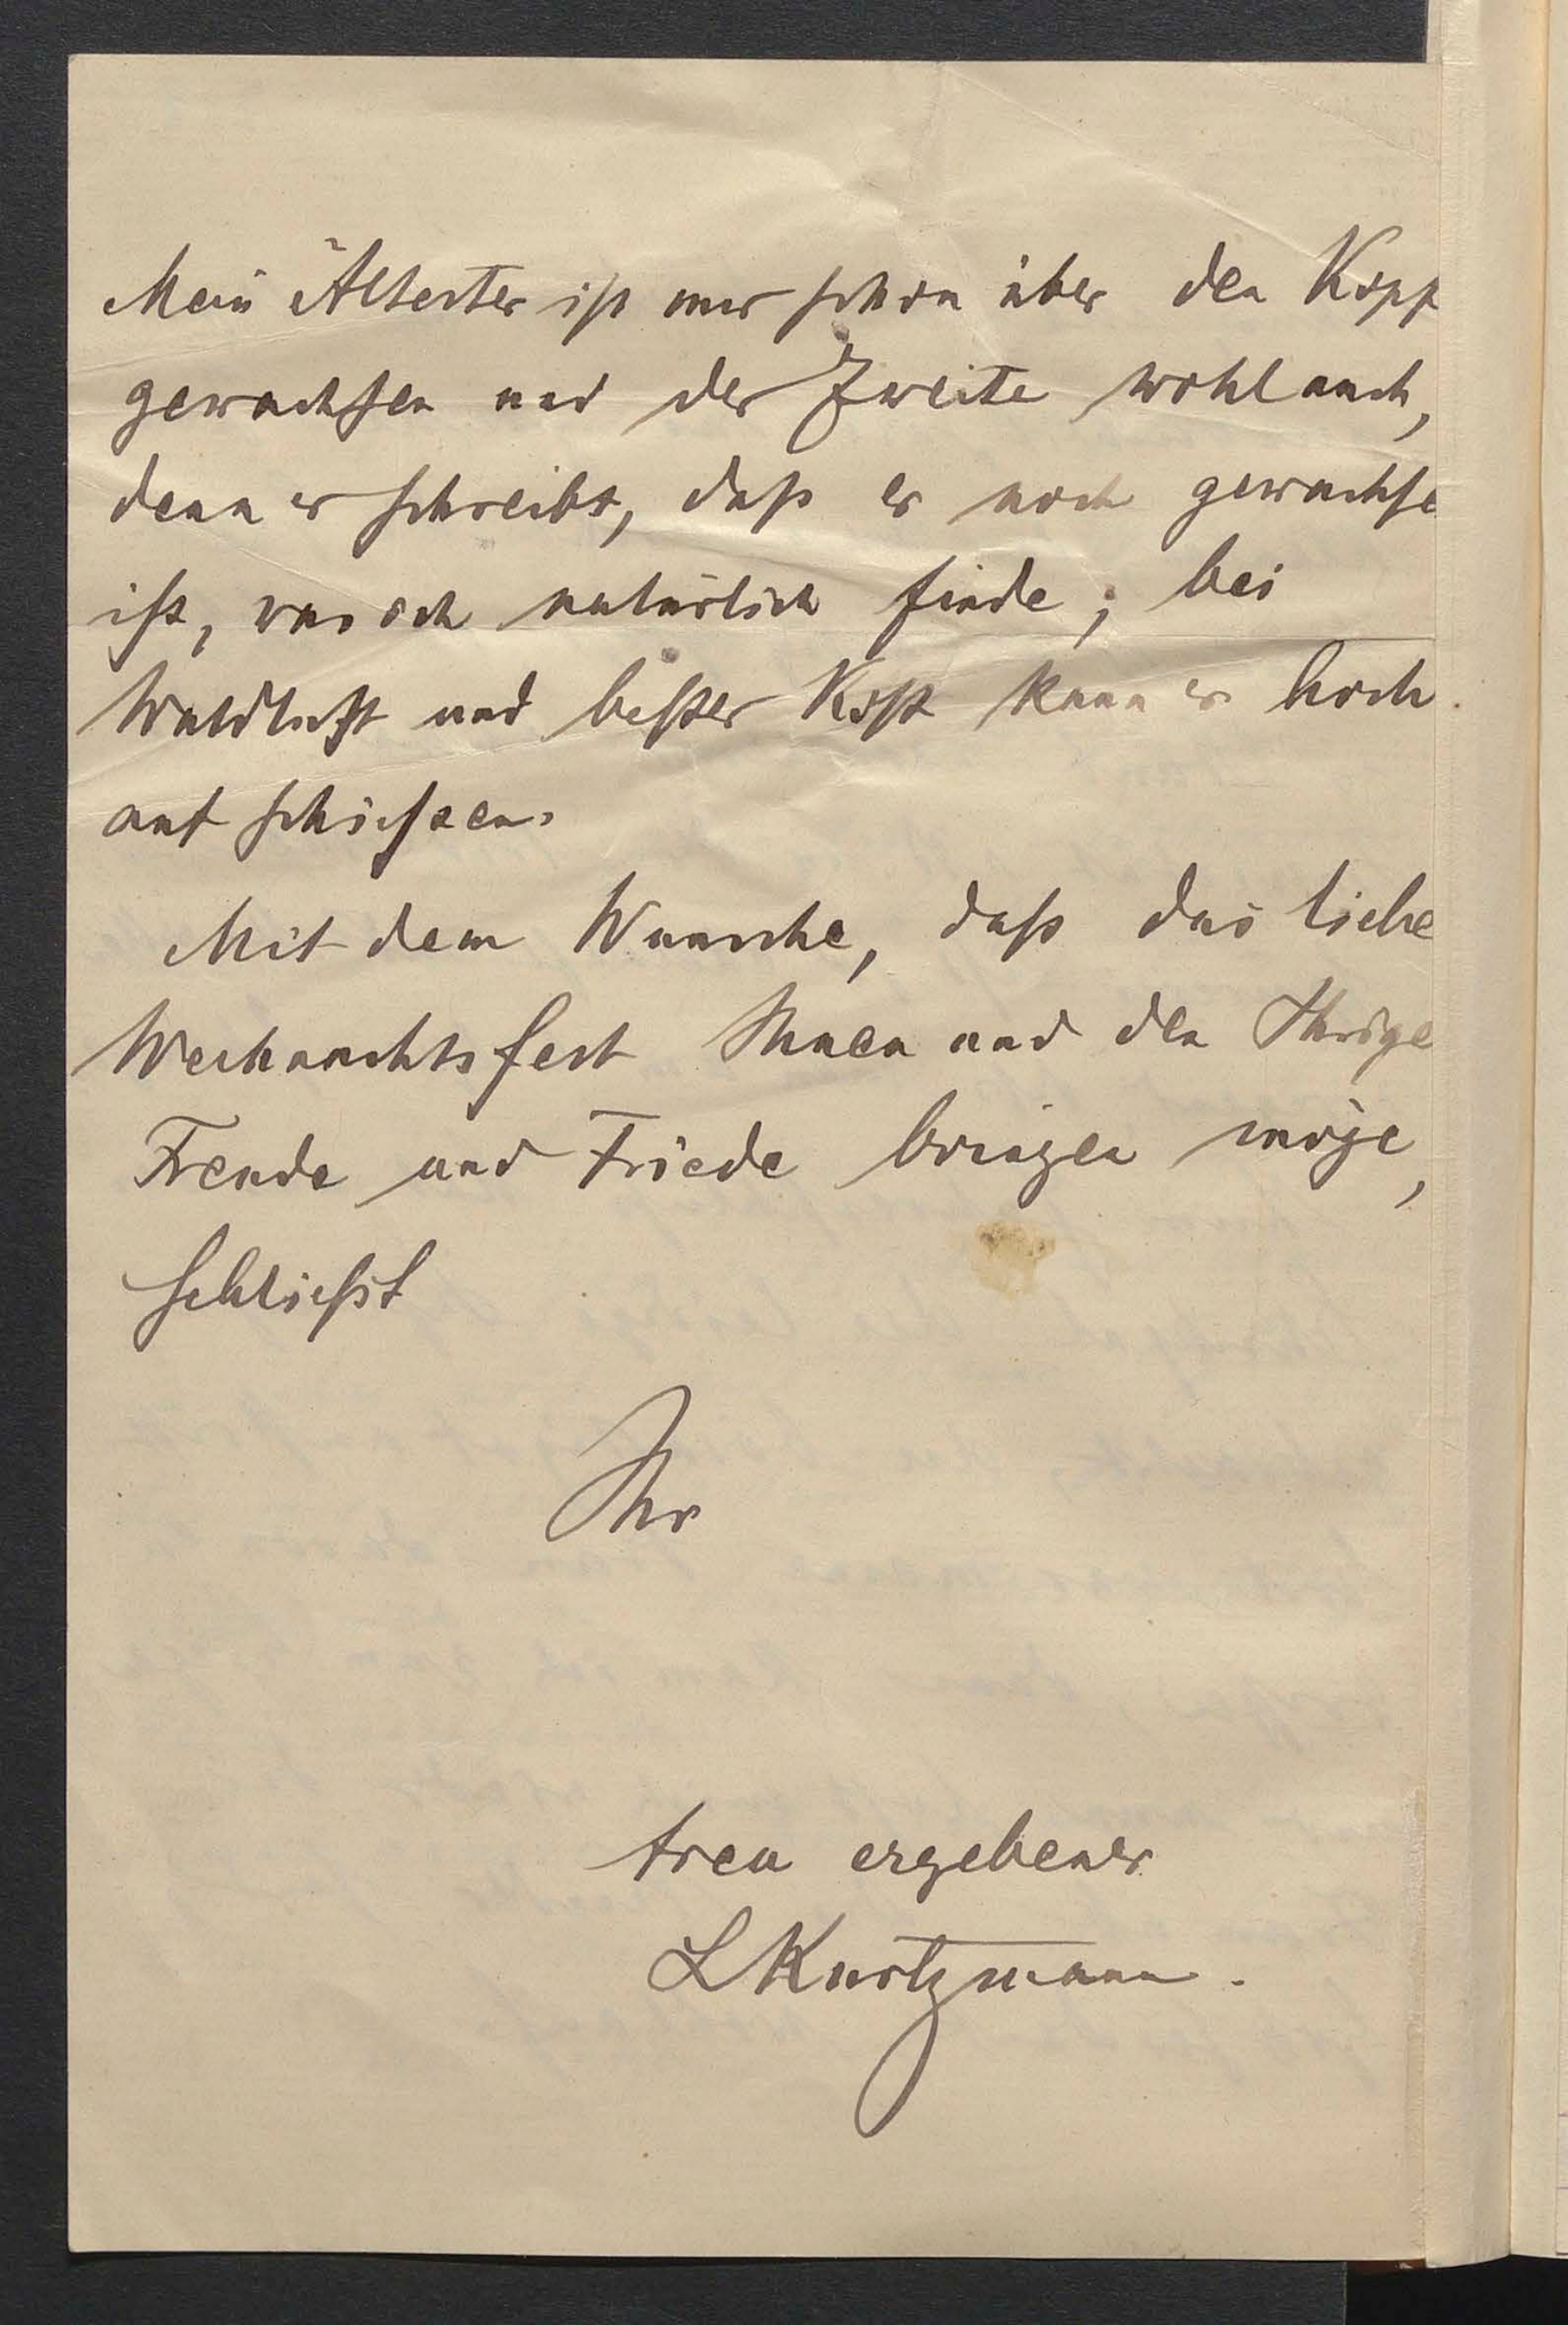 Mein Ältester ist mir schon über den Kopf
gewachsen und der Zweite wohl auch,
denn er schreibt, daß er noch gewachse
ist, was ich natürlich finde; bei
Waldluft und bester Kost kann er hoch
aufschießen.
Mit dem Wunsche, daß das liebe
Weihnachtsfest Ihnen und den Ihrige
Freude und Friede bringen möge,
schließt
Ihr
treu ergebener
L Kurtzmann.